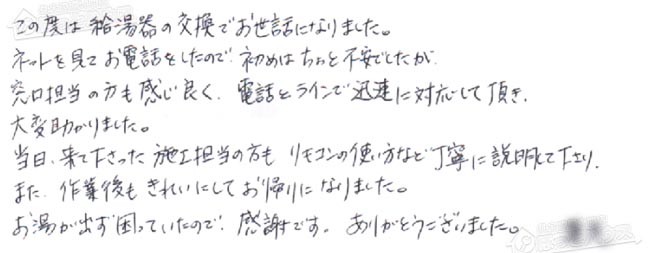 この度は給湯器の交換でお世話になりました。
ネットを見てお電話をしたので初めはちょっと不安でしたが
窓口担当の方も感じ良く、電話とラインで迅速に対応して頂き、
大変助かりました。
当日、来て下さった施工担当の方も リモコンの使い方など丁寧に説明して下さり、
また、作業後もきれいにしてお帰りになりました。
お湯が出ず困っていたので、感謝です。ありがとうございました。